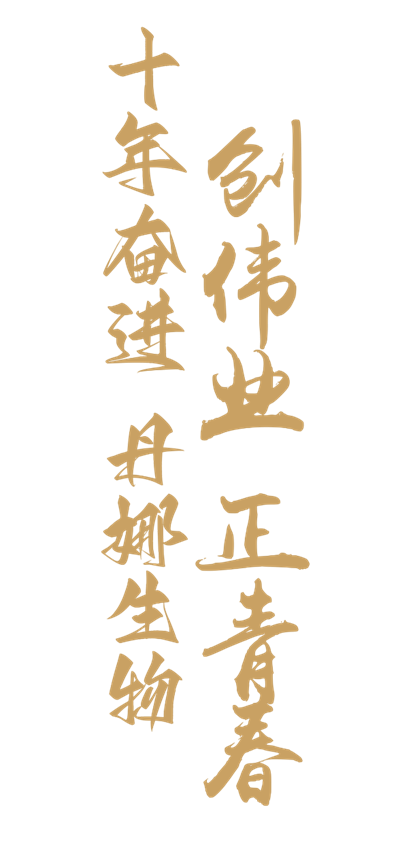 十年奋进 丹娜生物
创伟业 正青春